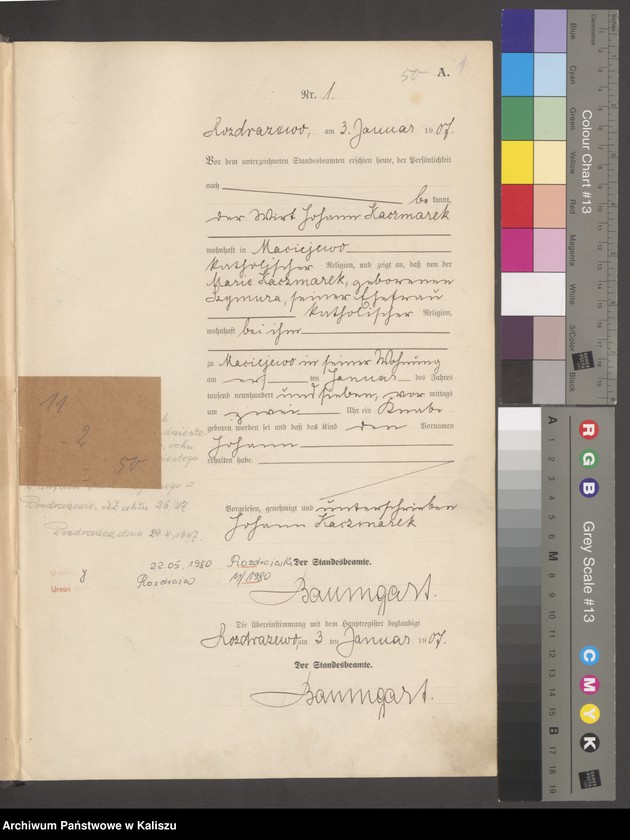 50 A. 1
Nr. 1.
Rozdrazewo, am 3. Januar 1907.
Vor dem unterzeichneten Standesbeamten erschien heute, der Persönlichkeit
nach
be kannt,
der Wirt Johann Kaczmarek
wohnhaft in Maciejewo
katholischer Religion, und zeigt an, daß von der
Marie Kaczmarek, geborenen
Szymura, seiner Ehefrau
katholischer Religion,
wohnhaft bei ihm
zu Maciejewo in seiner Wohnung
am ersten Januar des Jahres
tausend neunhundert und sieben, vor mittags
um zwei Uhr ein Knabe
geboren worden sei und daß das Kind den Vornamen
Johann
erhalten habe.
11
2
50
Nr aktu 26/47.
dnia 29.4.1947.
Vorgelesen, genehmigt und unterschrieben
Johann Kaczmarek
22.05.1980
Rozdraża
11/1980
Der Standesbeamte.
Baumgart.
Die Übereinstimmung mit dem Hauptregister beglaubigt
Rozdrazewo, am 3 ten Januar 1907.
Der Standesbeamte.
Baumgart.
Colour Chart #13
Blue
Cyan
Green
Yellow
Red
Magenta
White
3/Color
Black
Centimetres
Inches
Grey Scale #13
R
G
B
C
M
Y
K
A 1 2 3 4 5 6 M 8 9 10 11 12 13 14 15 B 17 18 19
Archiwum Państwowe w Kaliszu